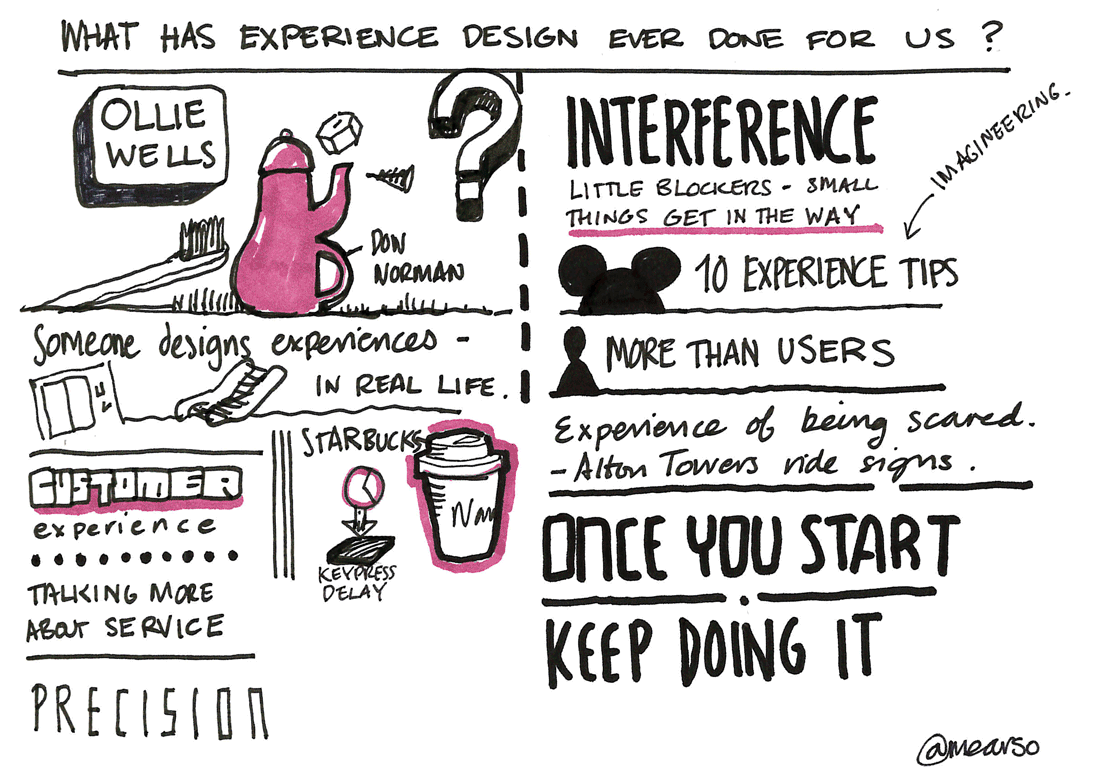 WHAT HAS EXPERIENCE DESIGN EVER DONE FOR US ?
OLLIE
WELLS
DON
NORMAN
Someone designs experiences -
IN REAL LIFE.
CUSTOMER
experience
TALKING MORE
ABOUT SERVICE
PRECISION
STARBUCKS
KEYPRESS
DELAY
INTERFERENCE
LITTLE BLOCKERS - SMALL
THINGS GET IN THE WAY
IMAGINEERING.
10 EXPERIENCE TIPS
MORE THAN USERS
Experience of being scared.
- Alton Towers ride signs.
ONCE YOU START
KEEP DOING IT
@mearso